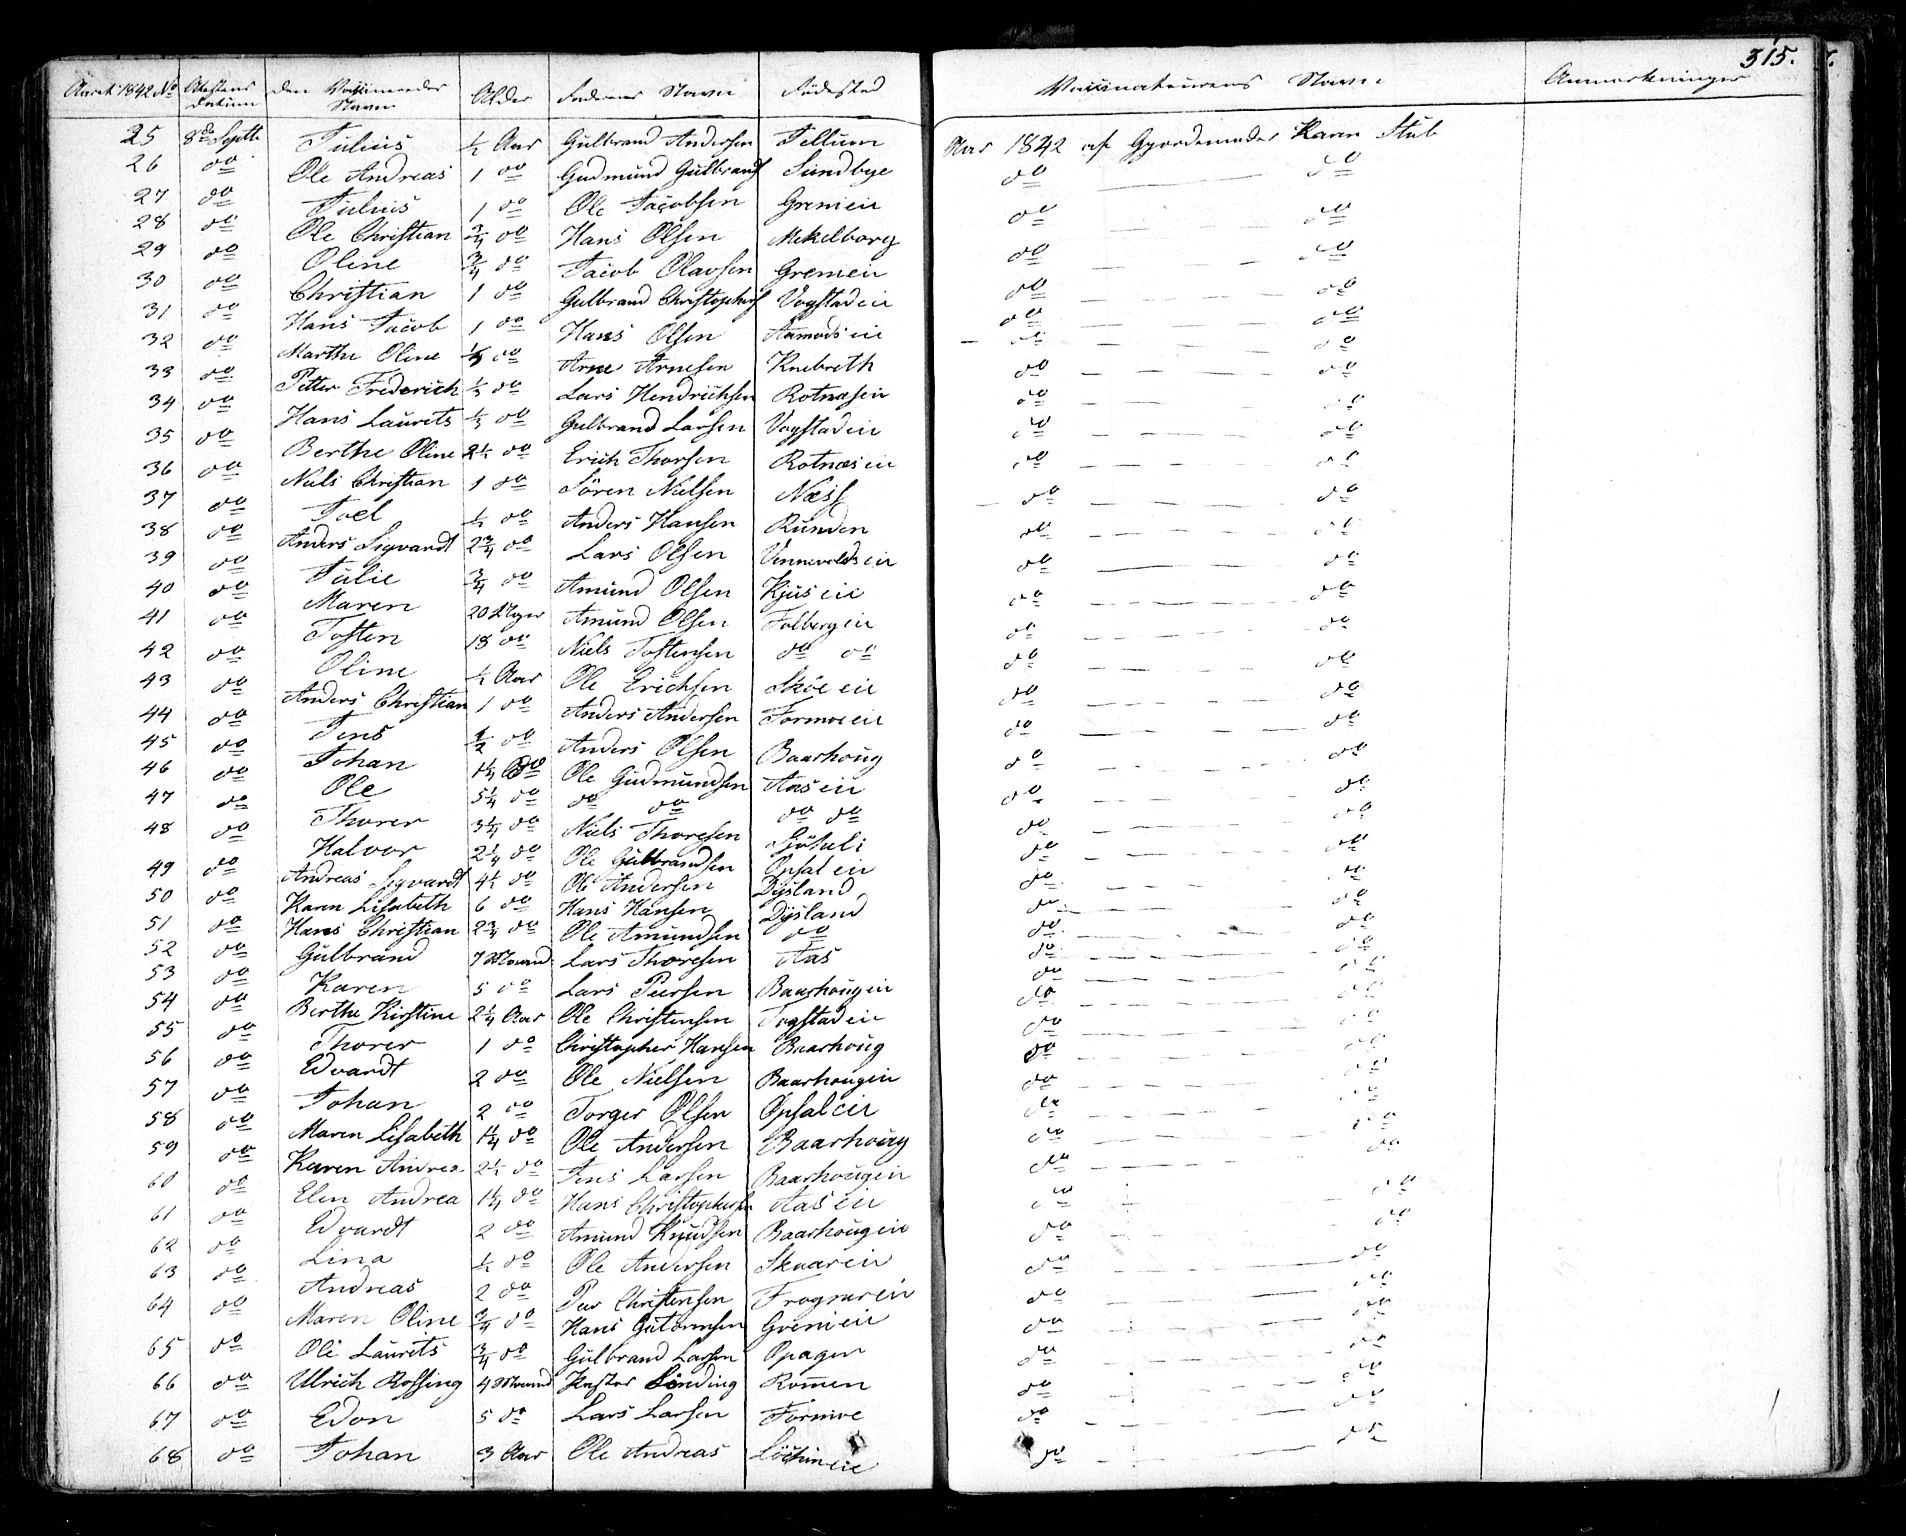 315.
Aaret 1842 No | Attestens Datum | den Vaccineredes Navn | Alder | Faderens Navn | Fødested | Vaccinateurens Navn | Anmærkninger
25 8de Septb Julius ½ Aar Gulbrand Andersen Tellum Aar 1842 af Gjordemoder Karen Stub
26 do Ole Andreas 1 do Gudmund Gulbrands Sundbye do do
27 do Julius 1 do Ole Jacobsen Gremeie do do
28 do Ole Christian ¾ do Hans Olsen Mekelborg do do
29 do Oline ¾ do Jacob Olavsen Gremeie do do
30 do Christian 1 do Gulbrand Christophers Vogstadeie do do
31 do Hans Jacob 1 do Hans Olsen Aamodseie do do
32 do Marthe Oline do Arne Arnesen Knebreth do do
33 do Petter Frederich do Lars Hendrichsen Rotnæseie do do
34 do Hans Laurits do Gulbrand Larsen Vogstadeie do do
35 do Berthe Oline 2½ do Erich Thorsen Rotnæseie do do
36 do Niels Christian 1 do Sören Nielsen Næss do do
37 do Joel ½ do Anders Hansen Runden do do
38 do Anders Sigvardt 2¾ do Lars Olsen Vennevoldseie do do
39 do Julie ¾ do Amund Olsen Kjuseie do do
40 do Maren 20 Uger Amund Olsen Folbergeie do do
41 do Tosten 18 do Niels Tostensen do do do do
42 do Oline ½ Aar Ole Erichsen Sköeeie do do
43 do Anders Christian 1 do Anders Andersen Formoeie do do
44 do Jens ½ do Anders Olsen Baarhoug do do
45 do Johan 1¼ do Ole Gudmundsen Aaseie do do
46 do Ole 5¼ do do do do do do do
47 do Thorer 3¼ do Niels Thoresen do do
48 do Halvor 2¼ do Ole Gulbrandsen Opsaleie do do
49 do Andreas Sigvardt 4½ do Ole Andersen Dysland do do
50 do Karen Lisabeth 6 do Hans Hansen Dysland do do
51 do Hans Christian 2¾ do Ole Amundsen do do do
52 do Gulbrand 7 Maaned Lars Thoresen Aas do do
53 do Karen 5 do Lars Peersen Baarhougeie do do
54 do Berthe Kirstine 2¼ Aar Ole Christensen Togstadeie do do
55 do Thorer 1 do Christopher Hansen Baarhoug do do
56 do Edvardt 2 do Ole Nielsen Baarhougeie do do
57 do Johan 2 do Torger Olsen Opsaleie do do
58 do Maren Lisabeth 1¼ do Ole Andersen Baarhoug do do
59 do Karen Andrea 2½ do Jens Larsen Baarhougeie do do
60 do Elen Andrea 1¼ do Hans Christophersen Aaseie do do
61 do Edvardt 2 do Amund Knudsen Baarhougeie do do
62 do Lina ½ do Ole Andersen Skaareie do do
63 do Andreas 2 do Peer Christensen Frognereie do do
64 do Maren Oline ¾ do Hans Gutormsen Greneie do do
65 do Ole Laurits ¾ do Gulbrand Larsen Opagen do do
66 do Ulrich Rossing 4 Maaned Pastor Linding Romen do do
67 do Edon 5 do Lars Larsen Formoe do do
68 do Johan 3 Aar Ole Andreas do do